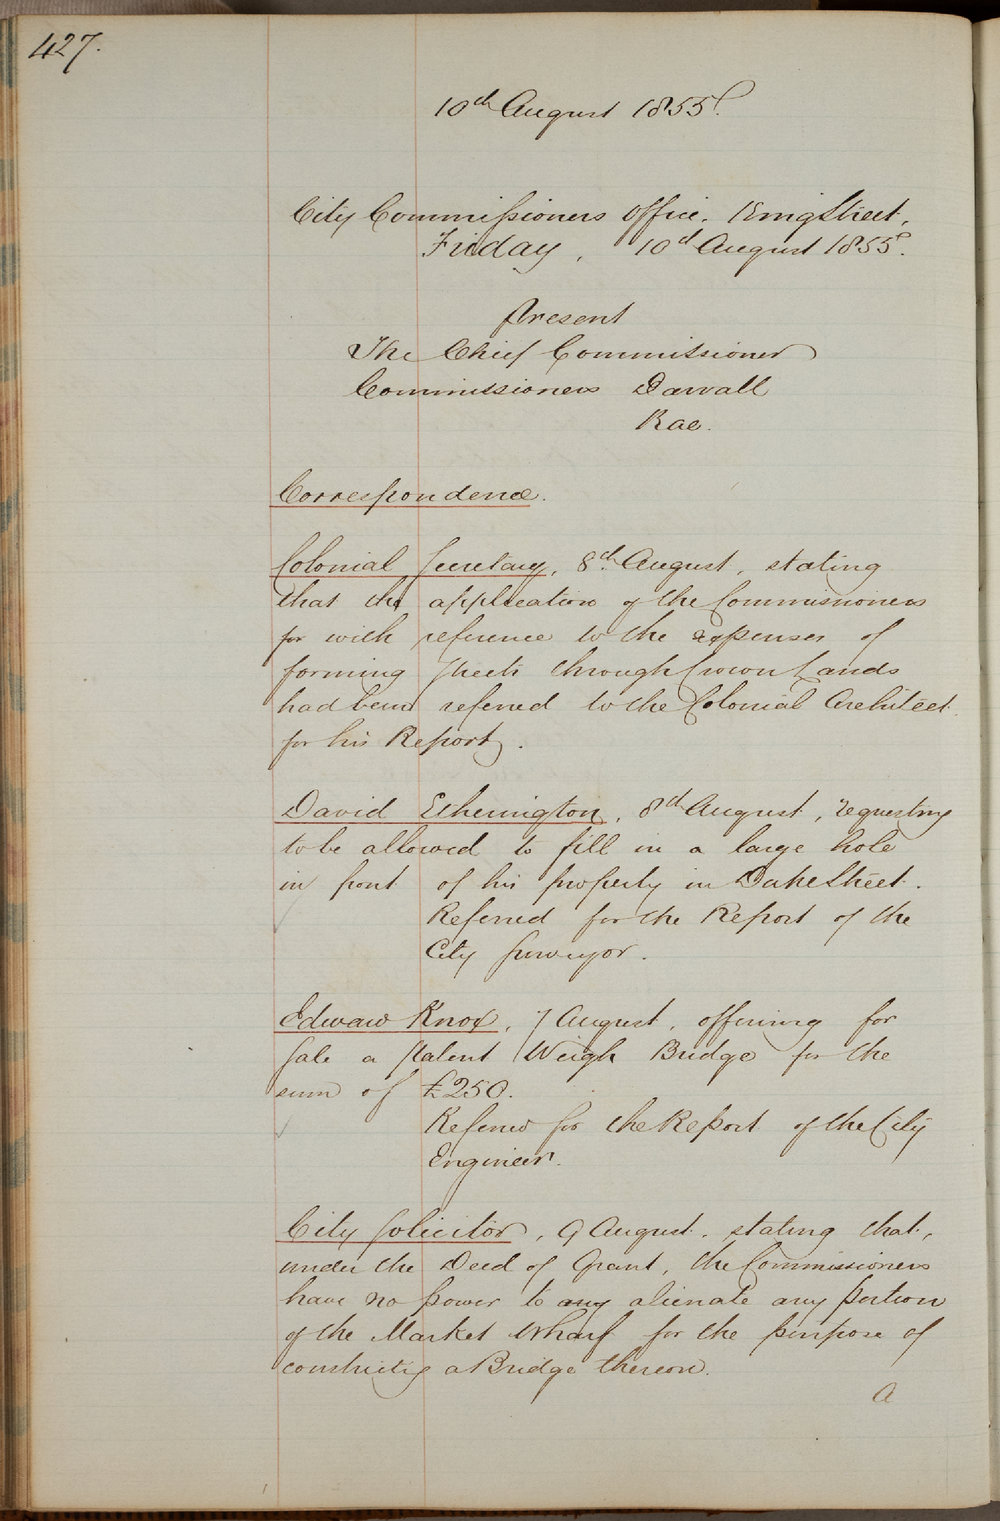 427.
10th August 1855.
City Commissioners Office. King Street,
Friday, 10th August 1855.
Present
The Chief Commissioner
Commissioners Darvall
Rae.
Correspondence.
Colonial Secretary, 8th August, stating
that the application of the Commissioners
for with reference to the expenses of
forming Streets through Crown Lands
had been referred to the Colonial Architect
for his Report.
David Etherington, 8th August, requesting
to be allowed to fill in a large hole
in front of his property in Duke Street.
Referred for the Report of the
City Surveyor.
Edward Knox, 7 August, offering for
Sale a patent Weigh Bridge for the
sum of £250.
Referred for the Report of the City
Engineer.
City Solicitor, 9 August, stating that,
under the Deed of Grant, the Commissioners
have no power to any alienate any portion
of the Market Wharf for the purpose of
constructg a Bridge thereon.
A